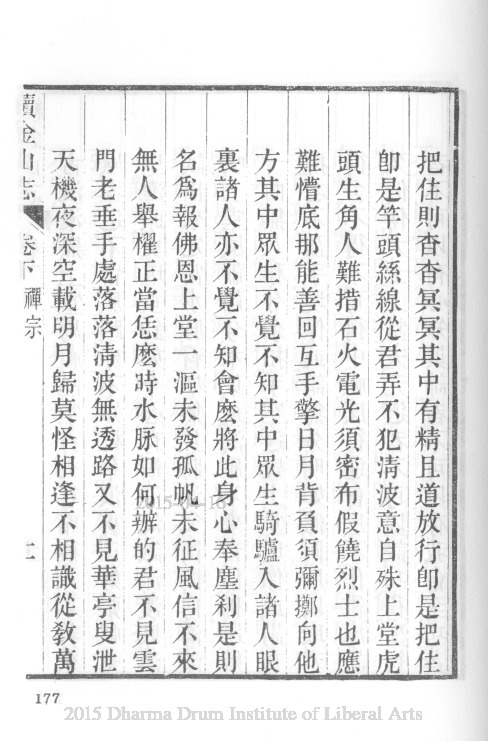 把住則杳杳冥冥其中有精且道放行卽是把住
卽是竿頭絲線從君弄不犯淸波意自殊上堂虎
頭生角人難措石火電光須密布假饒烈士也應
難懵底那能善回互手擎日月背負須彌擲向他
方其中眾生不覺不知其中眾生騎驢入諸人眼
裏諸人亦不覺不知會麽將此身心奉塵刹是則
名爲報佛恩上堂一漚未發孤帆未征風信不來
無人舉櫂正當恁麽時水脉如何辦的君不見雲
門老垂手處落落淸波無透路又不見華亭叟泄
天機夜深空載明月歸莫怪相逢不相識從敎萬
續金山志 卷下 禪宗
177
2015 Dharma Drum Institute of Liberal Arts